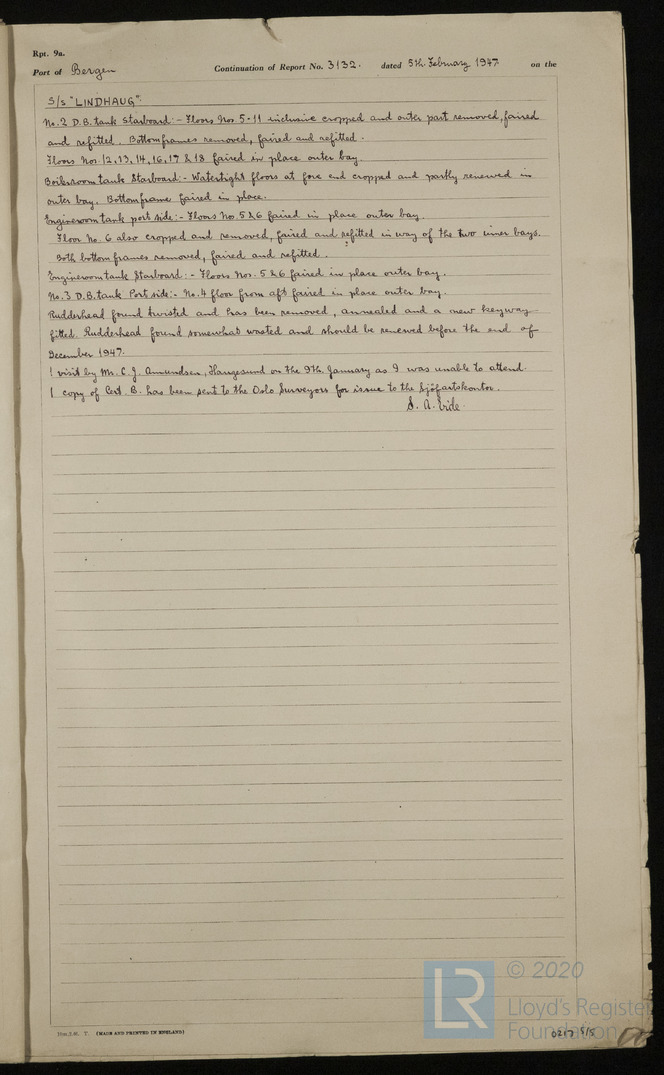 Rpt. 9a.
Port of Bergen Continuation of Report No. 3132. dated 5th. February 1947. on the
S/S "LINDHAUG".
No. 2 D.B. tank Starboard:- Floors Nos. 5-11 inclusive cropped and outer part removed, faired
and refitted. Bottomframes removed, faired and refitted.
Floors Nos 12, 13, 14, 16, 17 & 18 faired in place outer bay.
Boilerroom tank Starboard:- Watertight floors at fore end cropped and partly renewed in
outer bay. Bottomframe faired in place.
Engineroom tank port side:- Floors Nos. 5 & 6 faired in place outer bay.
Floor No. 6 also cropped and removed, faired and refitted in way of the two inner bays.
Both bottom frames removed, faired and refitted.
Engineroom tank Starboard:- Floors Nos. 5 & 6 faired in place outer bay.
No. 3 D.B. tank Port side:- No. 4 floor from aft faired in place outer bay.
Rudderhead found twisted and has been removed, annealed and a new keyway
fitted. Rudderhead found somewhat wasted and should be renewed before the end of
December 1947.
1 visit by Mr. C. J. Amundsen, Haugesund on the 9th. January as I was unable to attend.
1 copy of Cert. B. has been sent to the Oslo Surveyors for issue to the Sjöfartskontor.
S. A. Eide
(MADE AND PRINTED IN ENGLAND)
LR
© 2020
Lloyd's Register
Foundation
0217 5/5